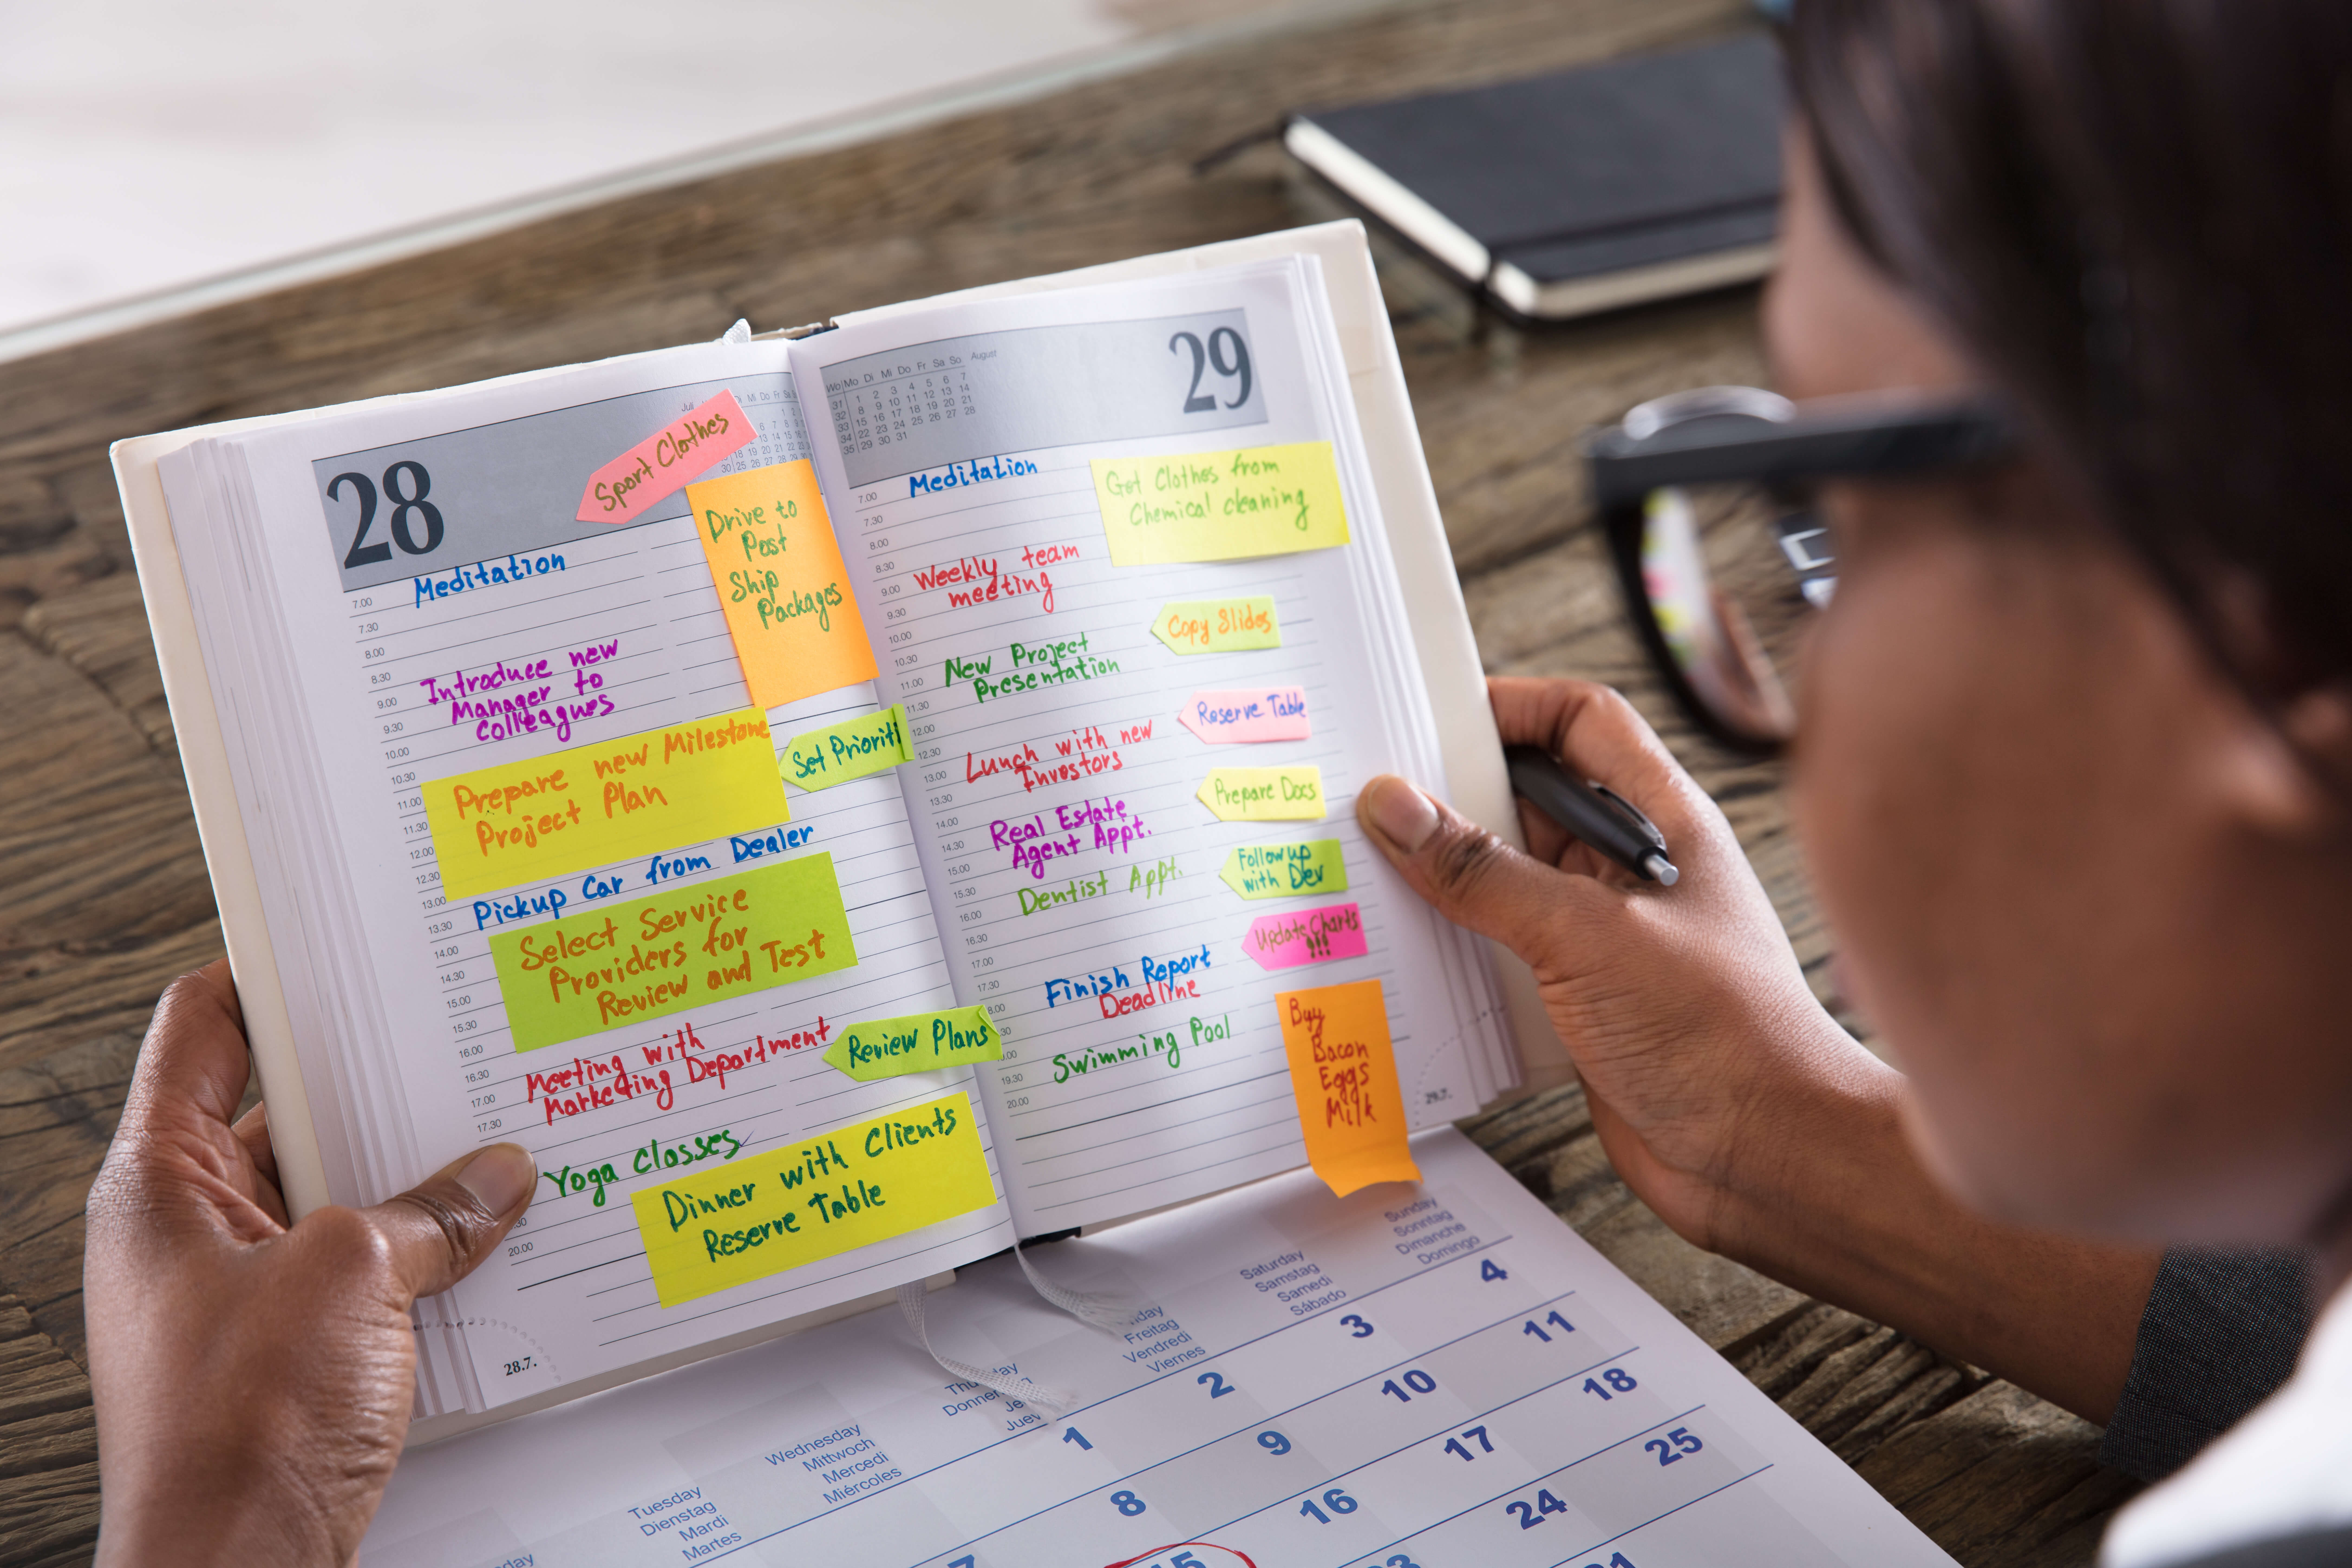 28
Juli
Mi Do Fr Sa
Sport Clothes
Drive to
Post
Ship
Packages
7.00
Meditation
7.30
8.00
8.30
Introduce new
9.00
Manager to
9.30
Colleagues
10.00
10.30
Prepare new Milestone
11.00
Project Plan
11.30
Set Prioriti
12.00
12.30
13.00
Pickup Car from Dealer
13.30
14.00
Select Service
14.30
Providers for
15.00
Review and Test
15.30
16.00
Meeting with
16.30
Marketing Department
17.00
Review Plans
17.30
Yoga Classes
Dinner with Clients
Reserve Table
20.00
28.7.
29
Wo Mo Di Mi Do Fr Sa So August
31 1 2 3 4 5 6 7
32 8 9 10 11 12 13 14
33 15 16 17 18 19 20 21
34 22 23 24 25 26 27 28
35 29 30 31
Meditation
7.00
Get Clothes from
Chemical cleaning
7.30
8.00
8.30
Weekly team
9.00
meeting
9.30
Copy Slides
10.00
10.30
New Project
11.00
Presentation
11.30
Reserve Table
12.00
12.30
Lunch with new
13.00
Investors
13.30
Prepare Docs
14.00
Real Estate
14.30
Agent Appt.
15.00
Follow up
with Dev
15.30
Dentist Appt.
16.00
16.30
Update Charts
!!!
17.00
17.30
Finish Report
Deadline
Swimming Pool
19.30
20.00
Buy
Bacon
Eggs
Milk
29.7.
Sunday
Sonntag
Dimanche
Domingo
Saturday
Samstag
Samedi
Sábado
Freitag
Vendredi
Viernes
Wednesday
Mittwoch
Mercedi
Miércoles
Tuesday
Dienstag
Mardi
Martes
1 2 3 4
8 9 10 11
15 16 17 18
24 25